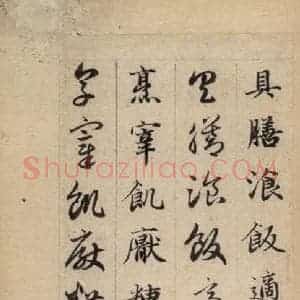 具膳飡飯適
具膳飡飯
烹宰飢厭
烹宰飢厭
ShufaZiliao.COM